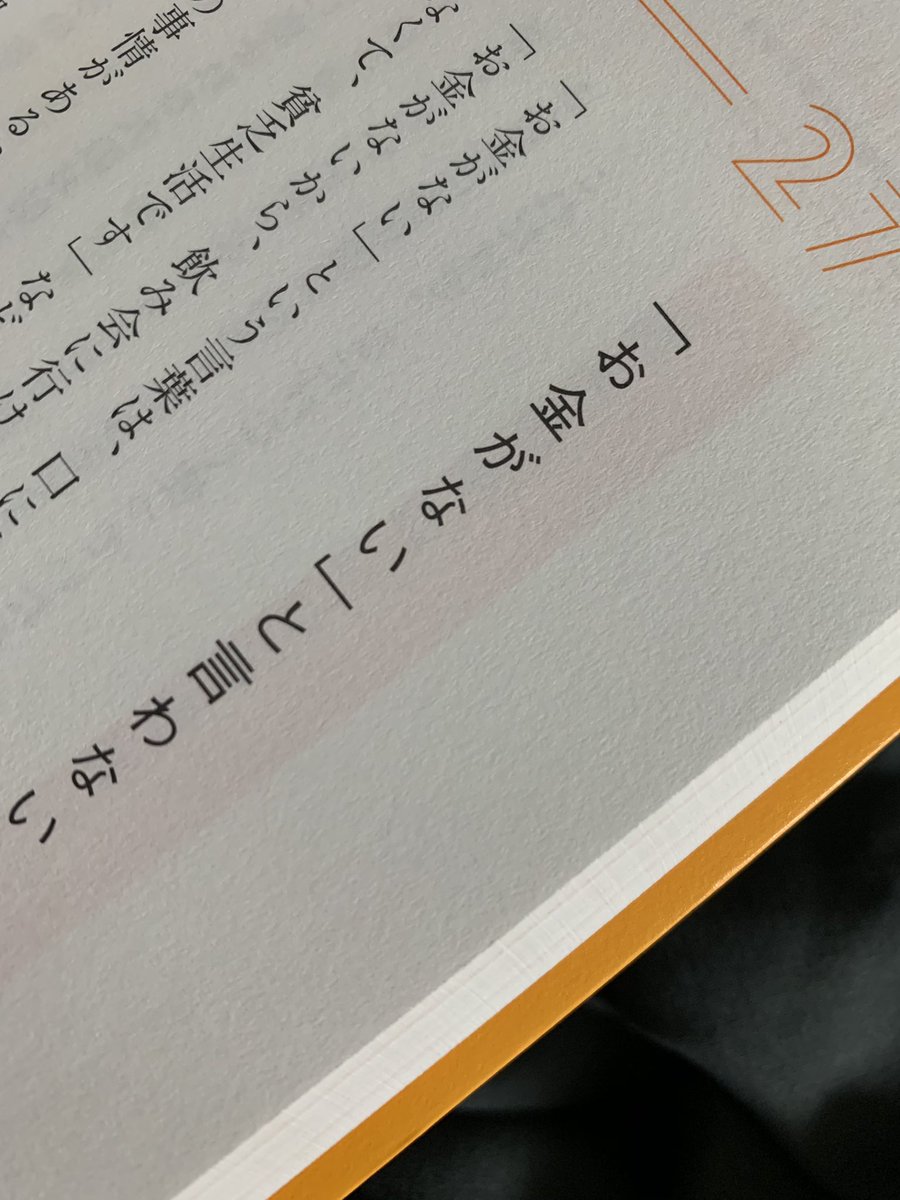 27
「お金がない」と言わない
「お金がない」という言葉は、口に
「お金がないから、飲み会に行け
なくて、貧乏生活です」など
の事情がある